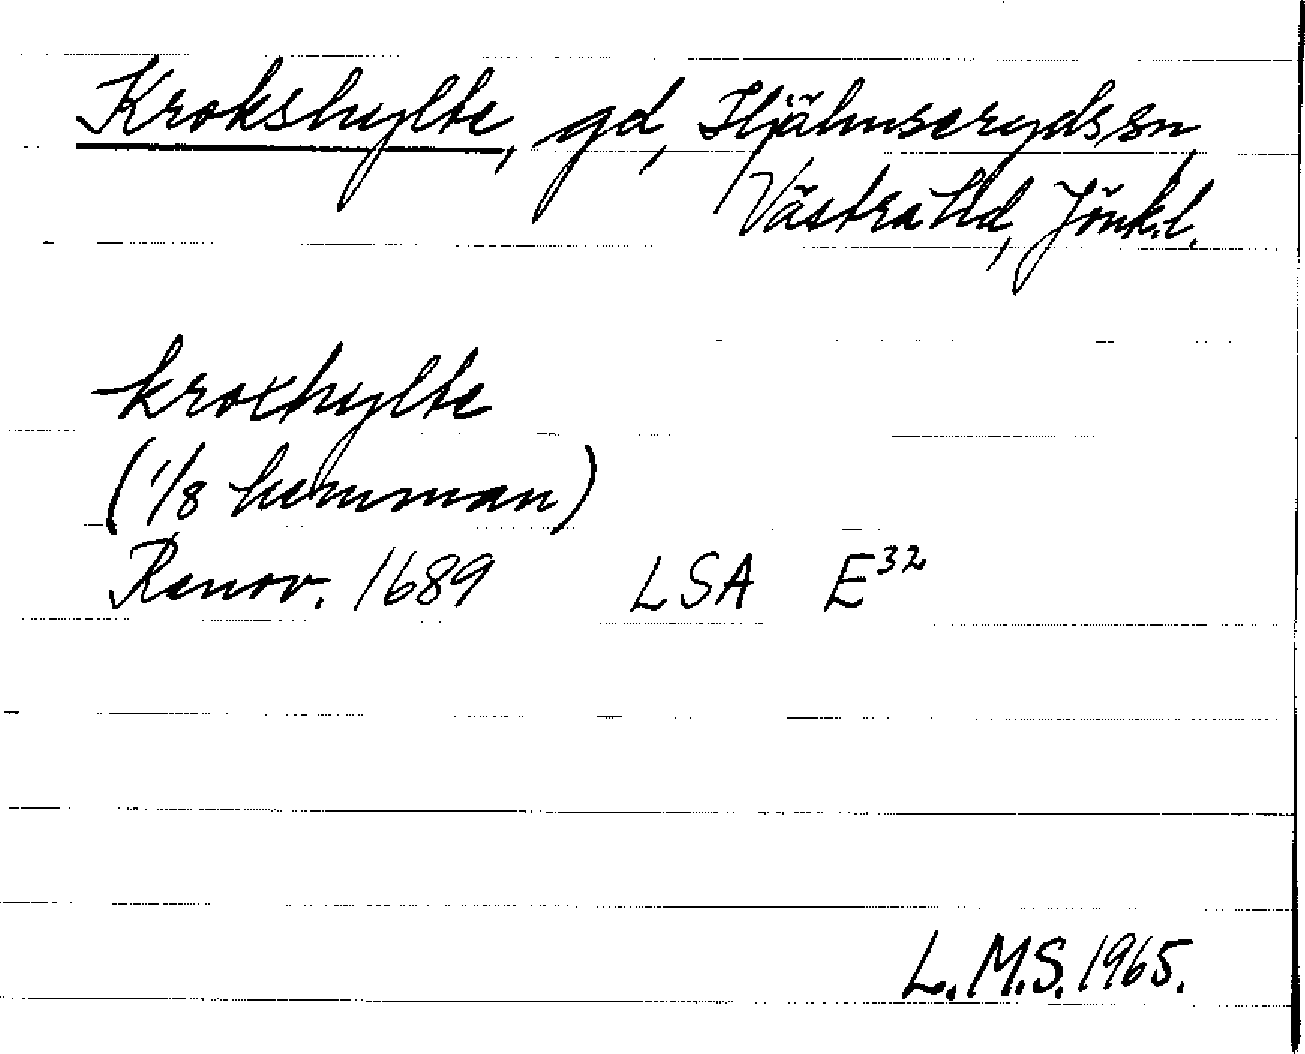 Krokshylte, gd, Hjälmseryds sn,
Västra hd, Jönk.l.
kroxhylte
(1/8 hemman)
Renov. 1689 LSA E³²
L.M.S. 1965.